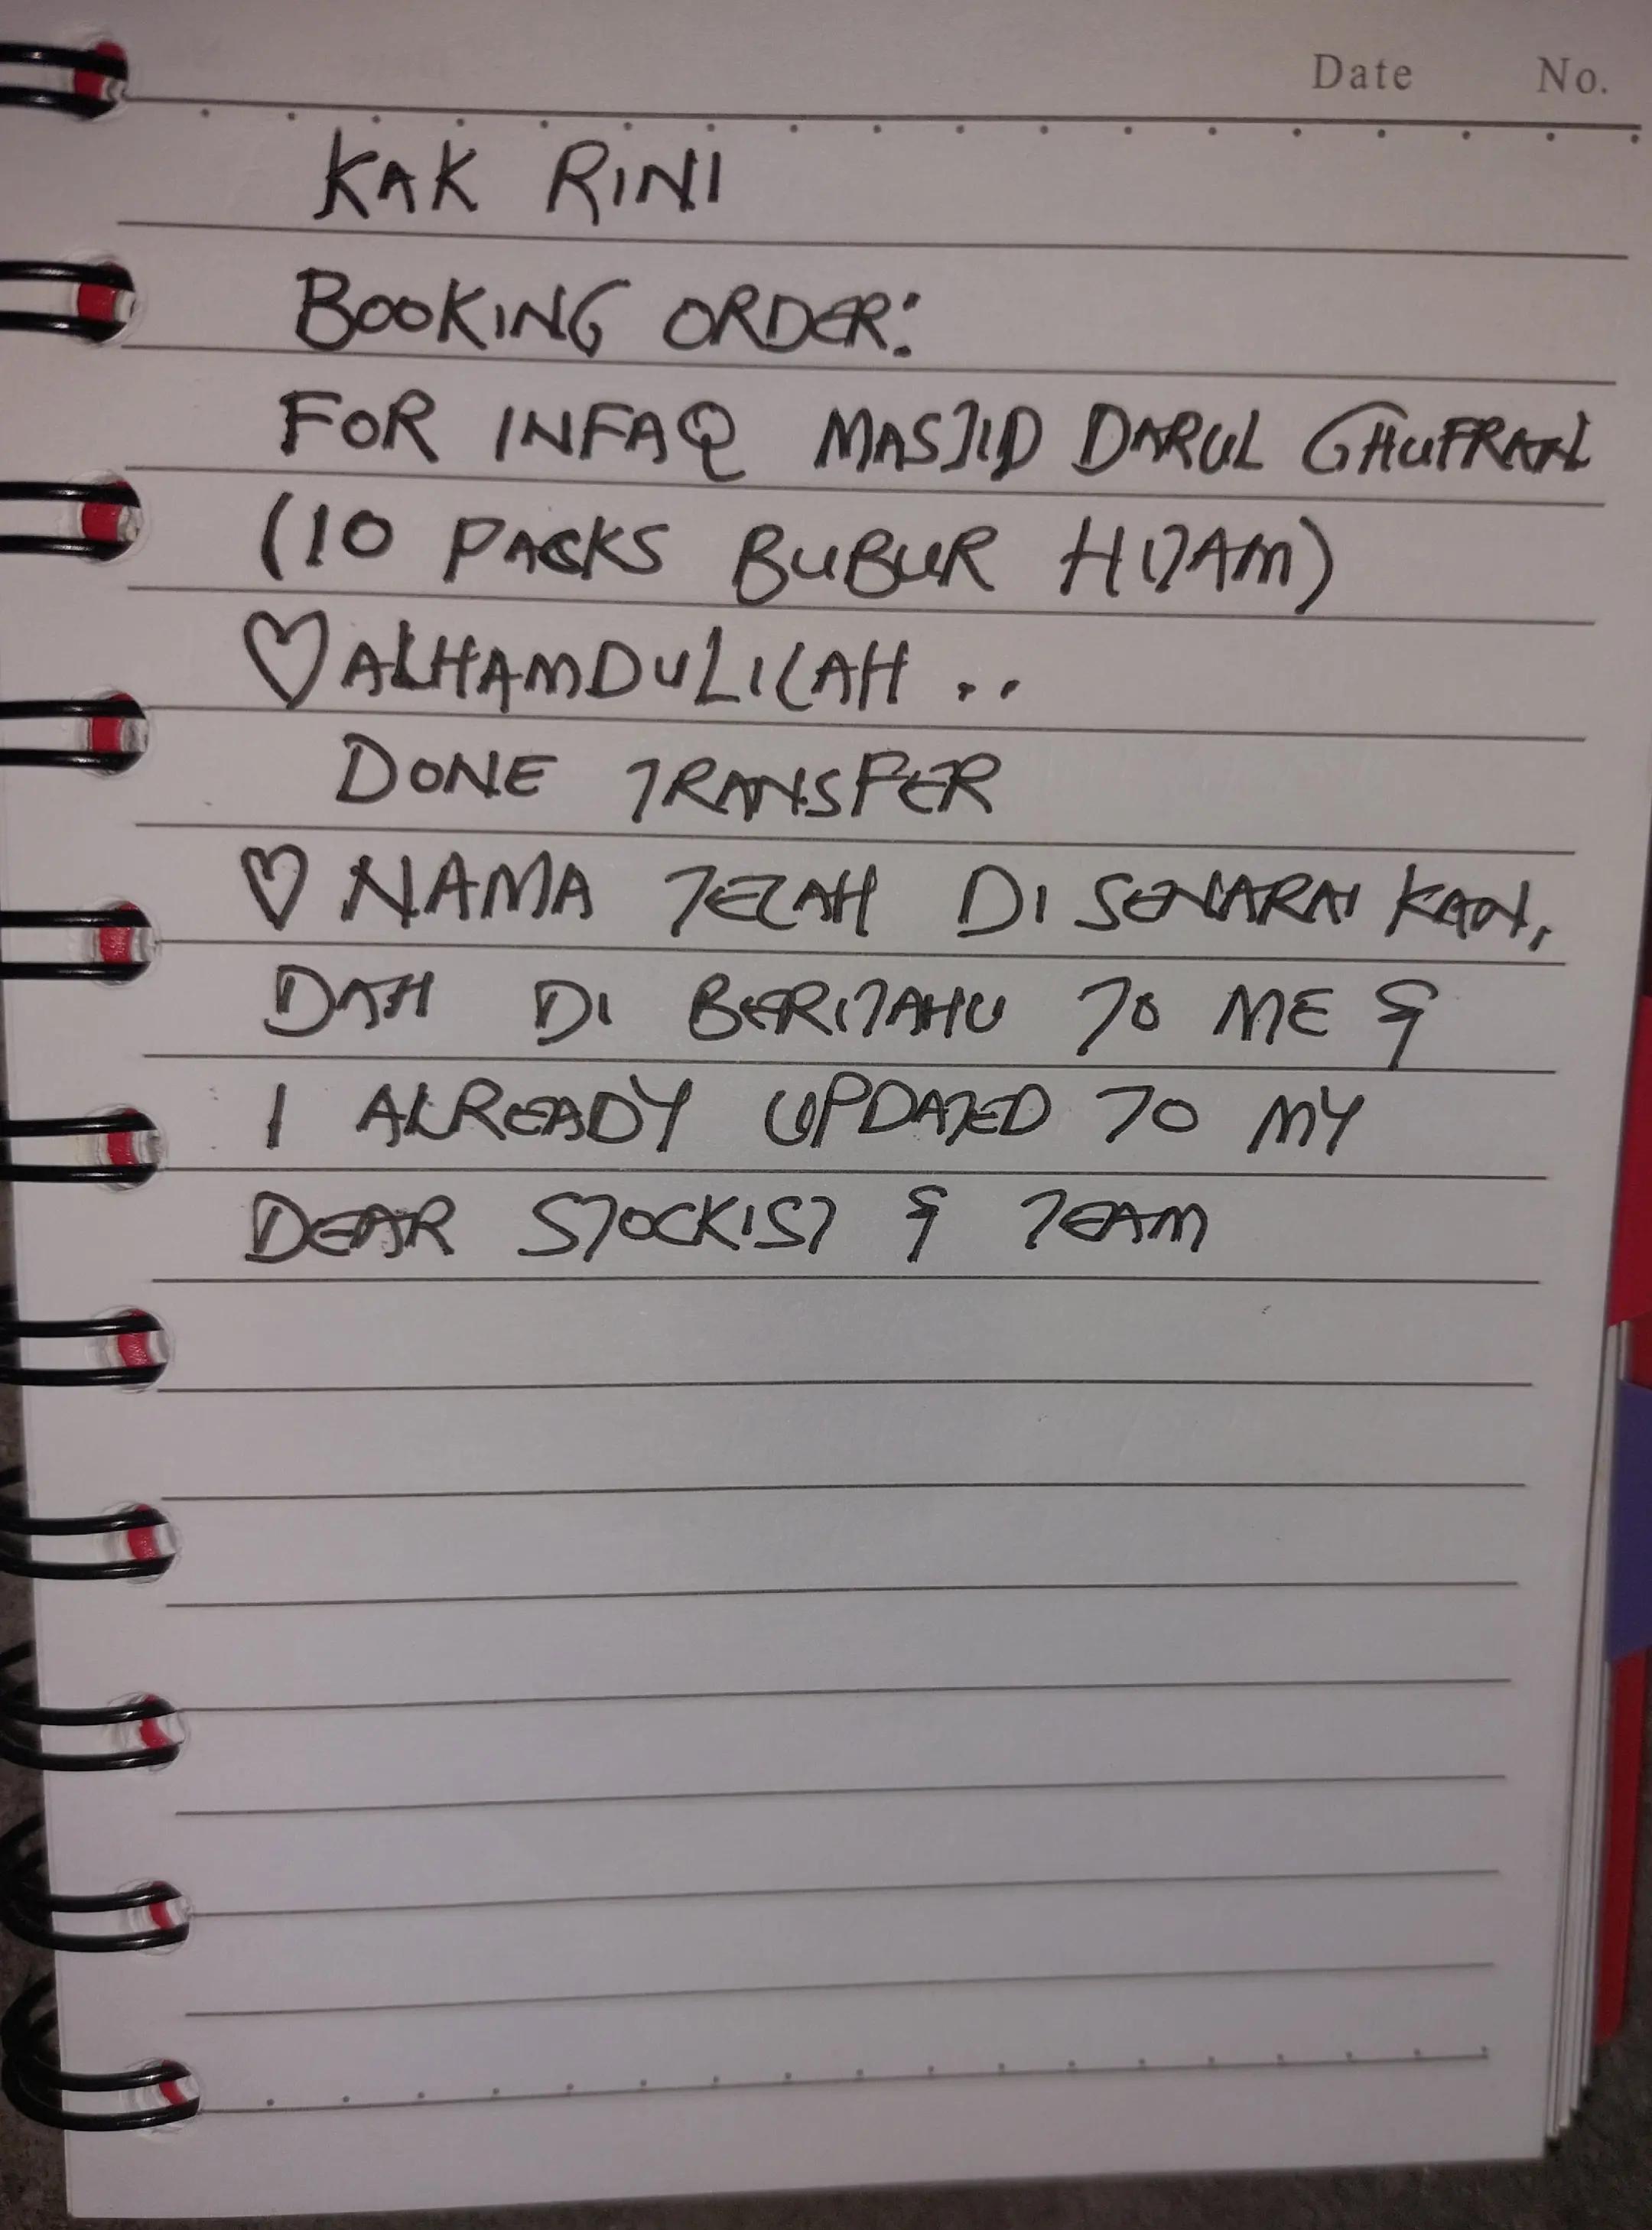 Date No.
KAK RINI
BOOKING ORDER:
FOR INFAQ MASJID DARUL GHUFRAN
(10 PACKS BUBUR HITAM)
♡ ALHAMDULILAH ..
DONE TRANSFER
♡ NAMA TELAH DI SENARAI KAN,
DAH DI BERITAHU TO ME &
I ALREADY UPDATED TO MY
DEAR STOCKIST & TEAM